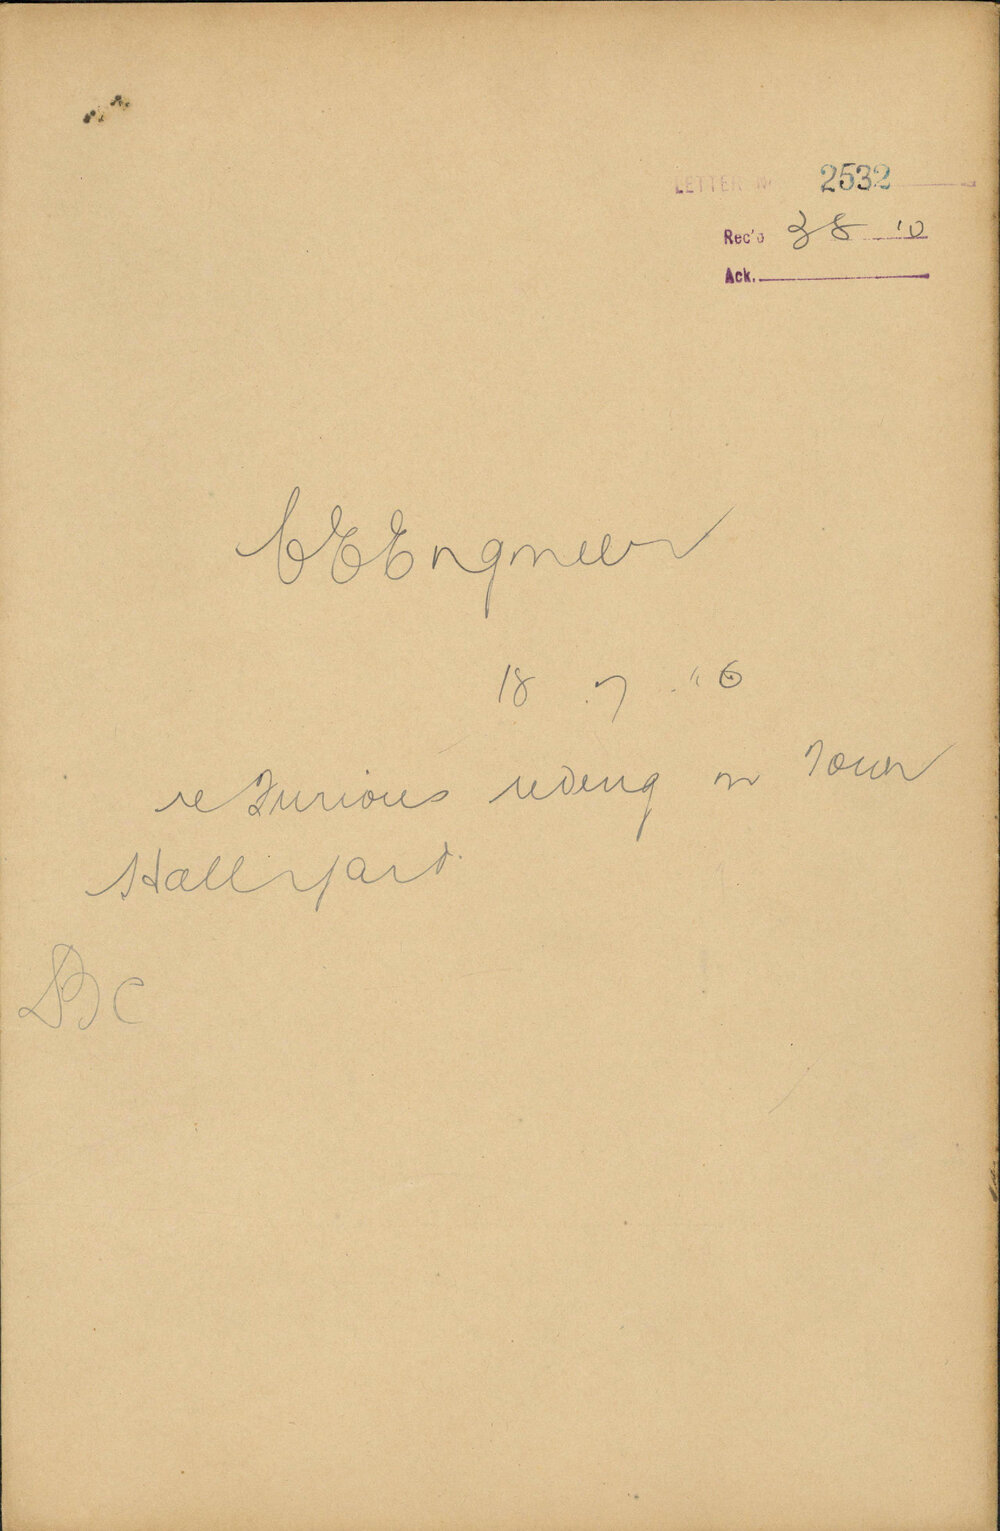 LETTER No 2532
Rec'd 3 8 '10
Ack.
C E Engineer
18 . 7 .
re Furious riding in Town
Hall yard.